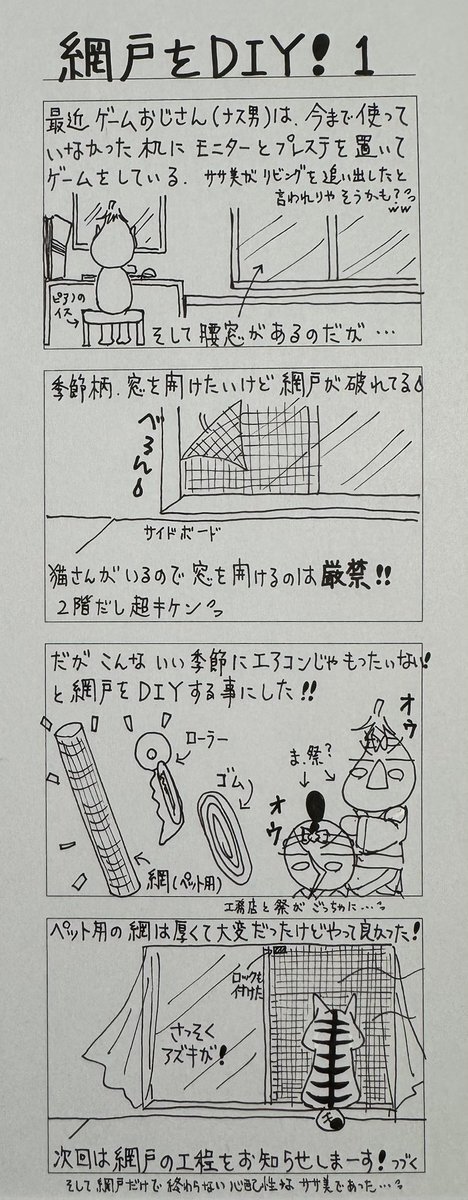 網戸をDIY！1
最近ゲームおじさん(ナス男)は、今まで使って
いなかった机にモニターとプレステを置いて
ゲームをしている。ササ美がリビングを追い出したと
言われりゃそうかも？
ww
ピアノの
イス
そして腰窓があるのだが…
季節柄、窓を開けたいけど網戸が破れてる
べろん
サイドボード
猫さんがいるので窓を開けるのは厳禁!!
2階だし超キケン
だがこんないい季節にエアコンじゃもったいない！
と網戸をDIYする事にした!!
ローラー
ゴム
網(ペット用)
オウ
ま、祭？
オウ
工務店と祭がごっちゃに…
ペット用の網は厚くて大変だったけどやって良かった！
ロックも
付けた
さっそく
アズキが！
次回は網戸の工程をお知らせしまーす！つづく
そして網戸だけで終わらない心配性なササ美であった…